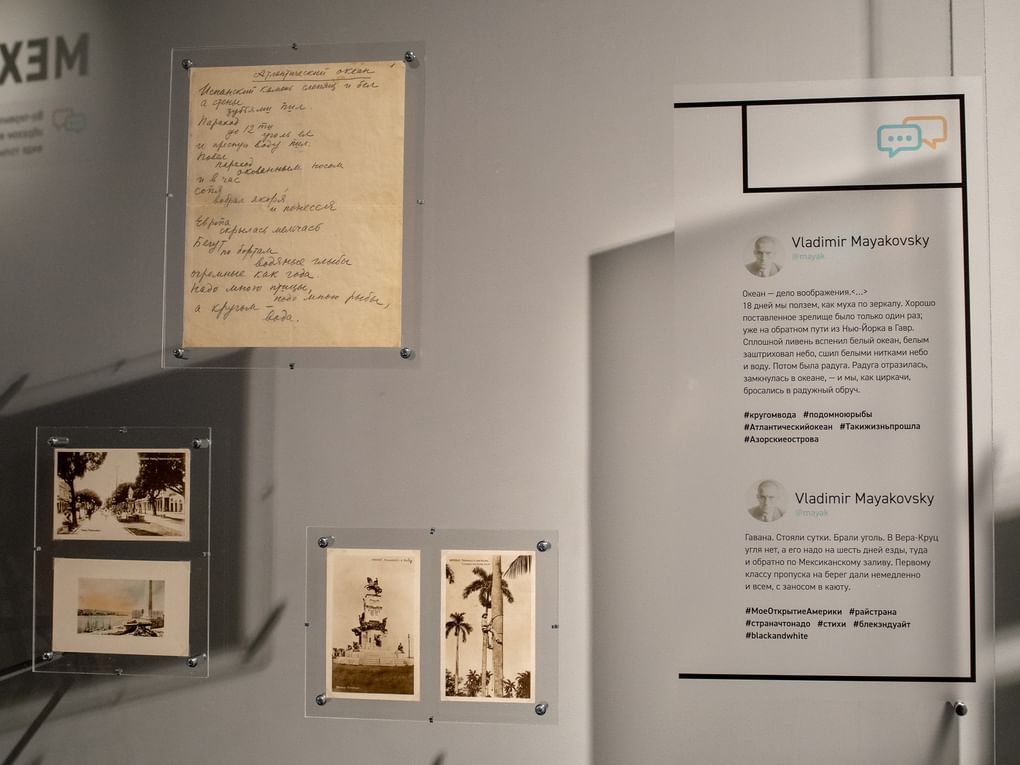 МЕХ
Атлантический океан
Испанский камень слепящ и бел
а стены
зубьями пил.
Пароход
до 12 ти
уголь ел
и пресную воду пил.
Повел
пароход
окованным носом
и в час
сопя
вобрал якоря
и понесся
Европа
скрылась мельчась
Бегут
по бортам
водяные глыбы
огромные как года.
Надо мною птицы,
подо мною рыбы,
а кругом —
вода.
Vladimir Mayakovsky
@mayak
Океан — дело воображения.<...>
18 дней мы ползем, как муха по зеркалу. Хорошо
поставленное зрелище было только один раз;
уже на обратном пути из Нью-Йорка в Гавр.
Сплошной ливень вспенил белый океан, белым
заштриховал небо, сшил белыми нитками небо
и воду. Потом была радуга. Радуга отразилась,
замкнулась в океане, — и мы, как циркачи,
бросались в радужный обруч.
#кругомвода #подомноюрыбы
#Атлантическийокеан #Такижизньпрошла
#Азорскиеострова
Vladimir Mayakovsky
@mayak
Гавана. Стояли сутки. Брали уголь. В Вера-Круц
угля нет, а его надо на шесть дней езды, туда
и обратно по Мексиканскому заливу. Первому
классу пропуска на берег дали немедленно
и всем, с заносом в каюту.
#МоеОткрытиеАмерики #райстрана
#страначтонадо #стихи #блекэндуайт
#blackandwhite